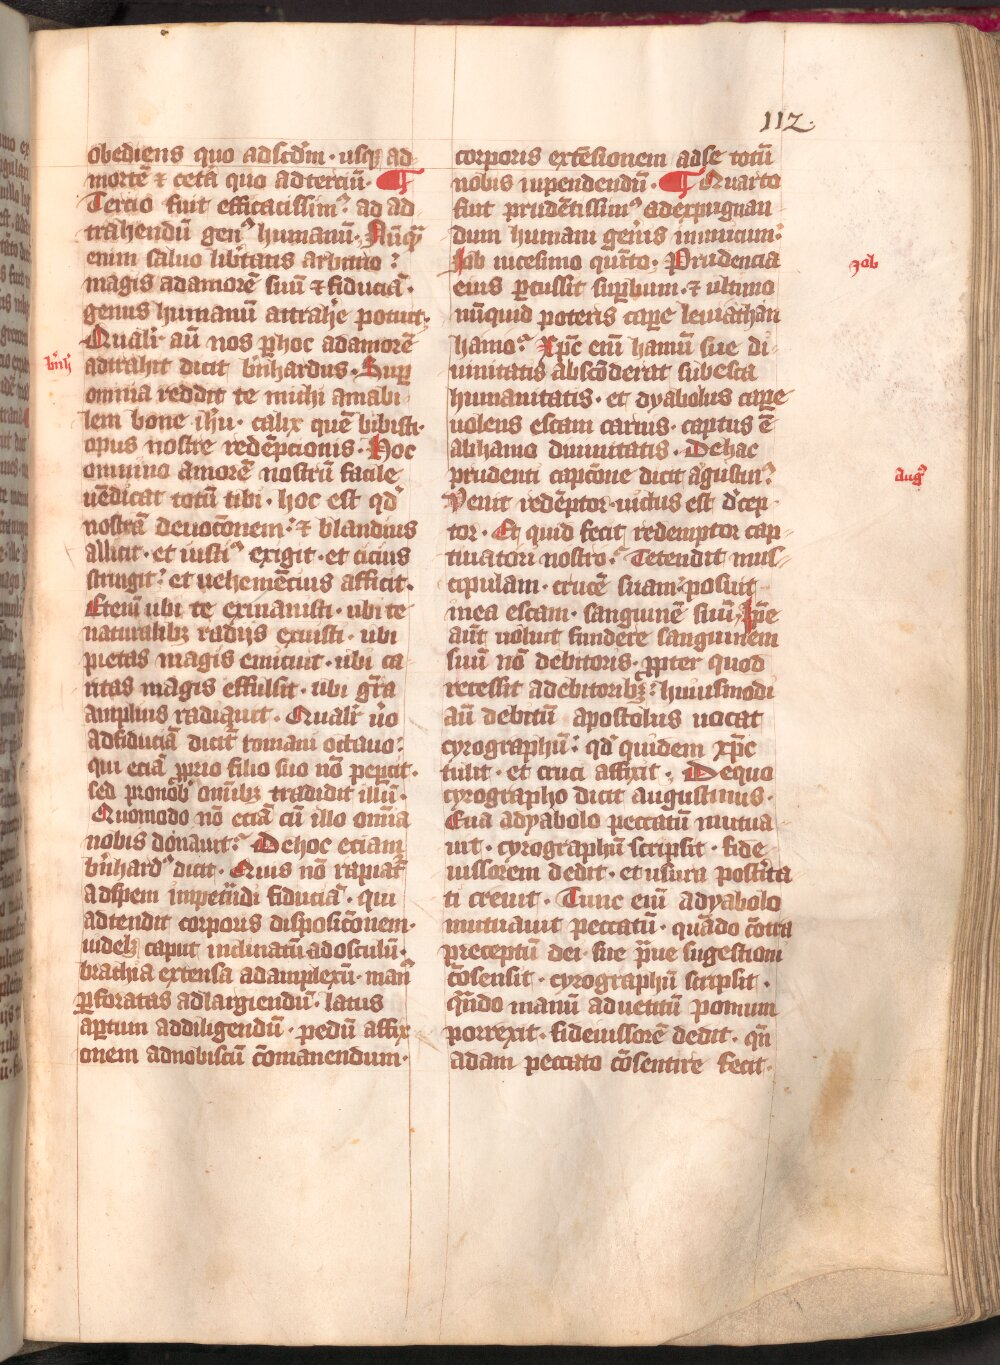 112.
obediens quo ad scd̄m · usqꝫ ad
mortē ⁊ cetā quo ad terciū · ¶
Tercio fuit efficacissimꝰ ad ad
trahendū genꝰ humanū · Nūqꝫ
enim saluo lib̄tatis arbitrio :
magis ad amorē suū ⁊ fiduciā ·
genus humanū attrahe potuit ·
Qualr̄ aūt nos p̱ hoc ad amorē
bn̄h
adtrahit dicit bn̄hardus · Suꝑ
omnia reddit te michi amabi
lem bone ih̄u · calix quē bibisti ·
opus nostre redēpcionis · Hoc
omnino amorē nostrū facile
uēdicat totū tibi · hoc est qd̄
nostrā deuocōnem : ⁊ blandius
allicit · et iustiꝰ exigit · et cicius
stringit : et uehemēcius afficit ·
Etenī ubi te exinanisti · ubi te
naturalibꝫ radijs exuisti · ubi
pietas magis emicuit · ubi ca
ritas magis effulsit · ubi gr̄a
amplius radiauit · Qualr̄ ūo
ad fiduciā dicit̄ romani octauo :
qui eciā ꝓprio filio suo nō peꝑcit ·
sed pro nob̄ om̄ibꝫ tradidit illū ·
Quomodo nō eciā cū illo om̄ia
nobis donauit : De hoc eciam
bn̄hardꝰ dicit · Quis nō rapiat̄
ad spem impetrādi fiduciā · qui
adtendit corporis disposicōnem ·
uidelꝫ caput inclinatū ad osculū ·
brachia extensa ad amplexū · manꝰ
ꝑforatas ad largiendū · latus
aꝑtum ad diligendū · pedū affix
onem ad nobiscū cōmanendum ·
corporis extēsionem ad se totū
nobis inpendendū · ¶ Quarto
fuit prudētissimꝰ ad expugnan
dum humani geñis inimicum :
Job uicesimo quīto · Prudencia
Job
eius ꝑcussit suꝑbum · ⁊ ultimo
nūquid poteris caꝑe leuiathan
hamo : Xp̄c eni hamū sue di
uinitatis absco͂derat sub esca
humanitatis · et dyabolus caꝑe
uolens escam carnis · captus ē
ab hamo diuinitatis · De hac
prudenti capcōne dicit agustinꝰ
augꝰ
Venit redēptor uictus est d̄cep
tor · Et quid fecit redemptor cap
tiuatori nostro : Tetendit mus
cipulam · crucē suam : posuit
in ea escam · sanguinē suū · Xp̄c
aūt uoluit fundere sanguinem
suū nō debitoris · ꝓpter quod
recessit a debitoribꝫ : huiusmodi
aū debitū apostolus uocat
cyrographū : qd̄ quidem xp̄c
tulit · et cruci affixit · De quo
cyrographo dicit augustinus ·
Eua a dyabolo peccatū mutua
uit · cyrographū scripsit · fide
iussorem dedit · et usura posteita
ti creuit · Tunc eni a dyabolo
mutuauit peccatū · quādo cōtra
preceptū dei · sue praue sugestioni
cōsensit · cyrographū scripsit ·
qn̄do manū ad uetitū pomum
porrexit · fideiussorē dedit · qn̄
adam peccato cōsentire fecit ·